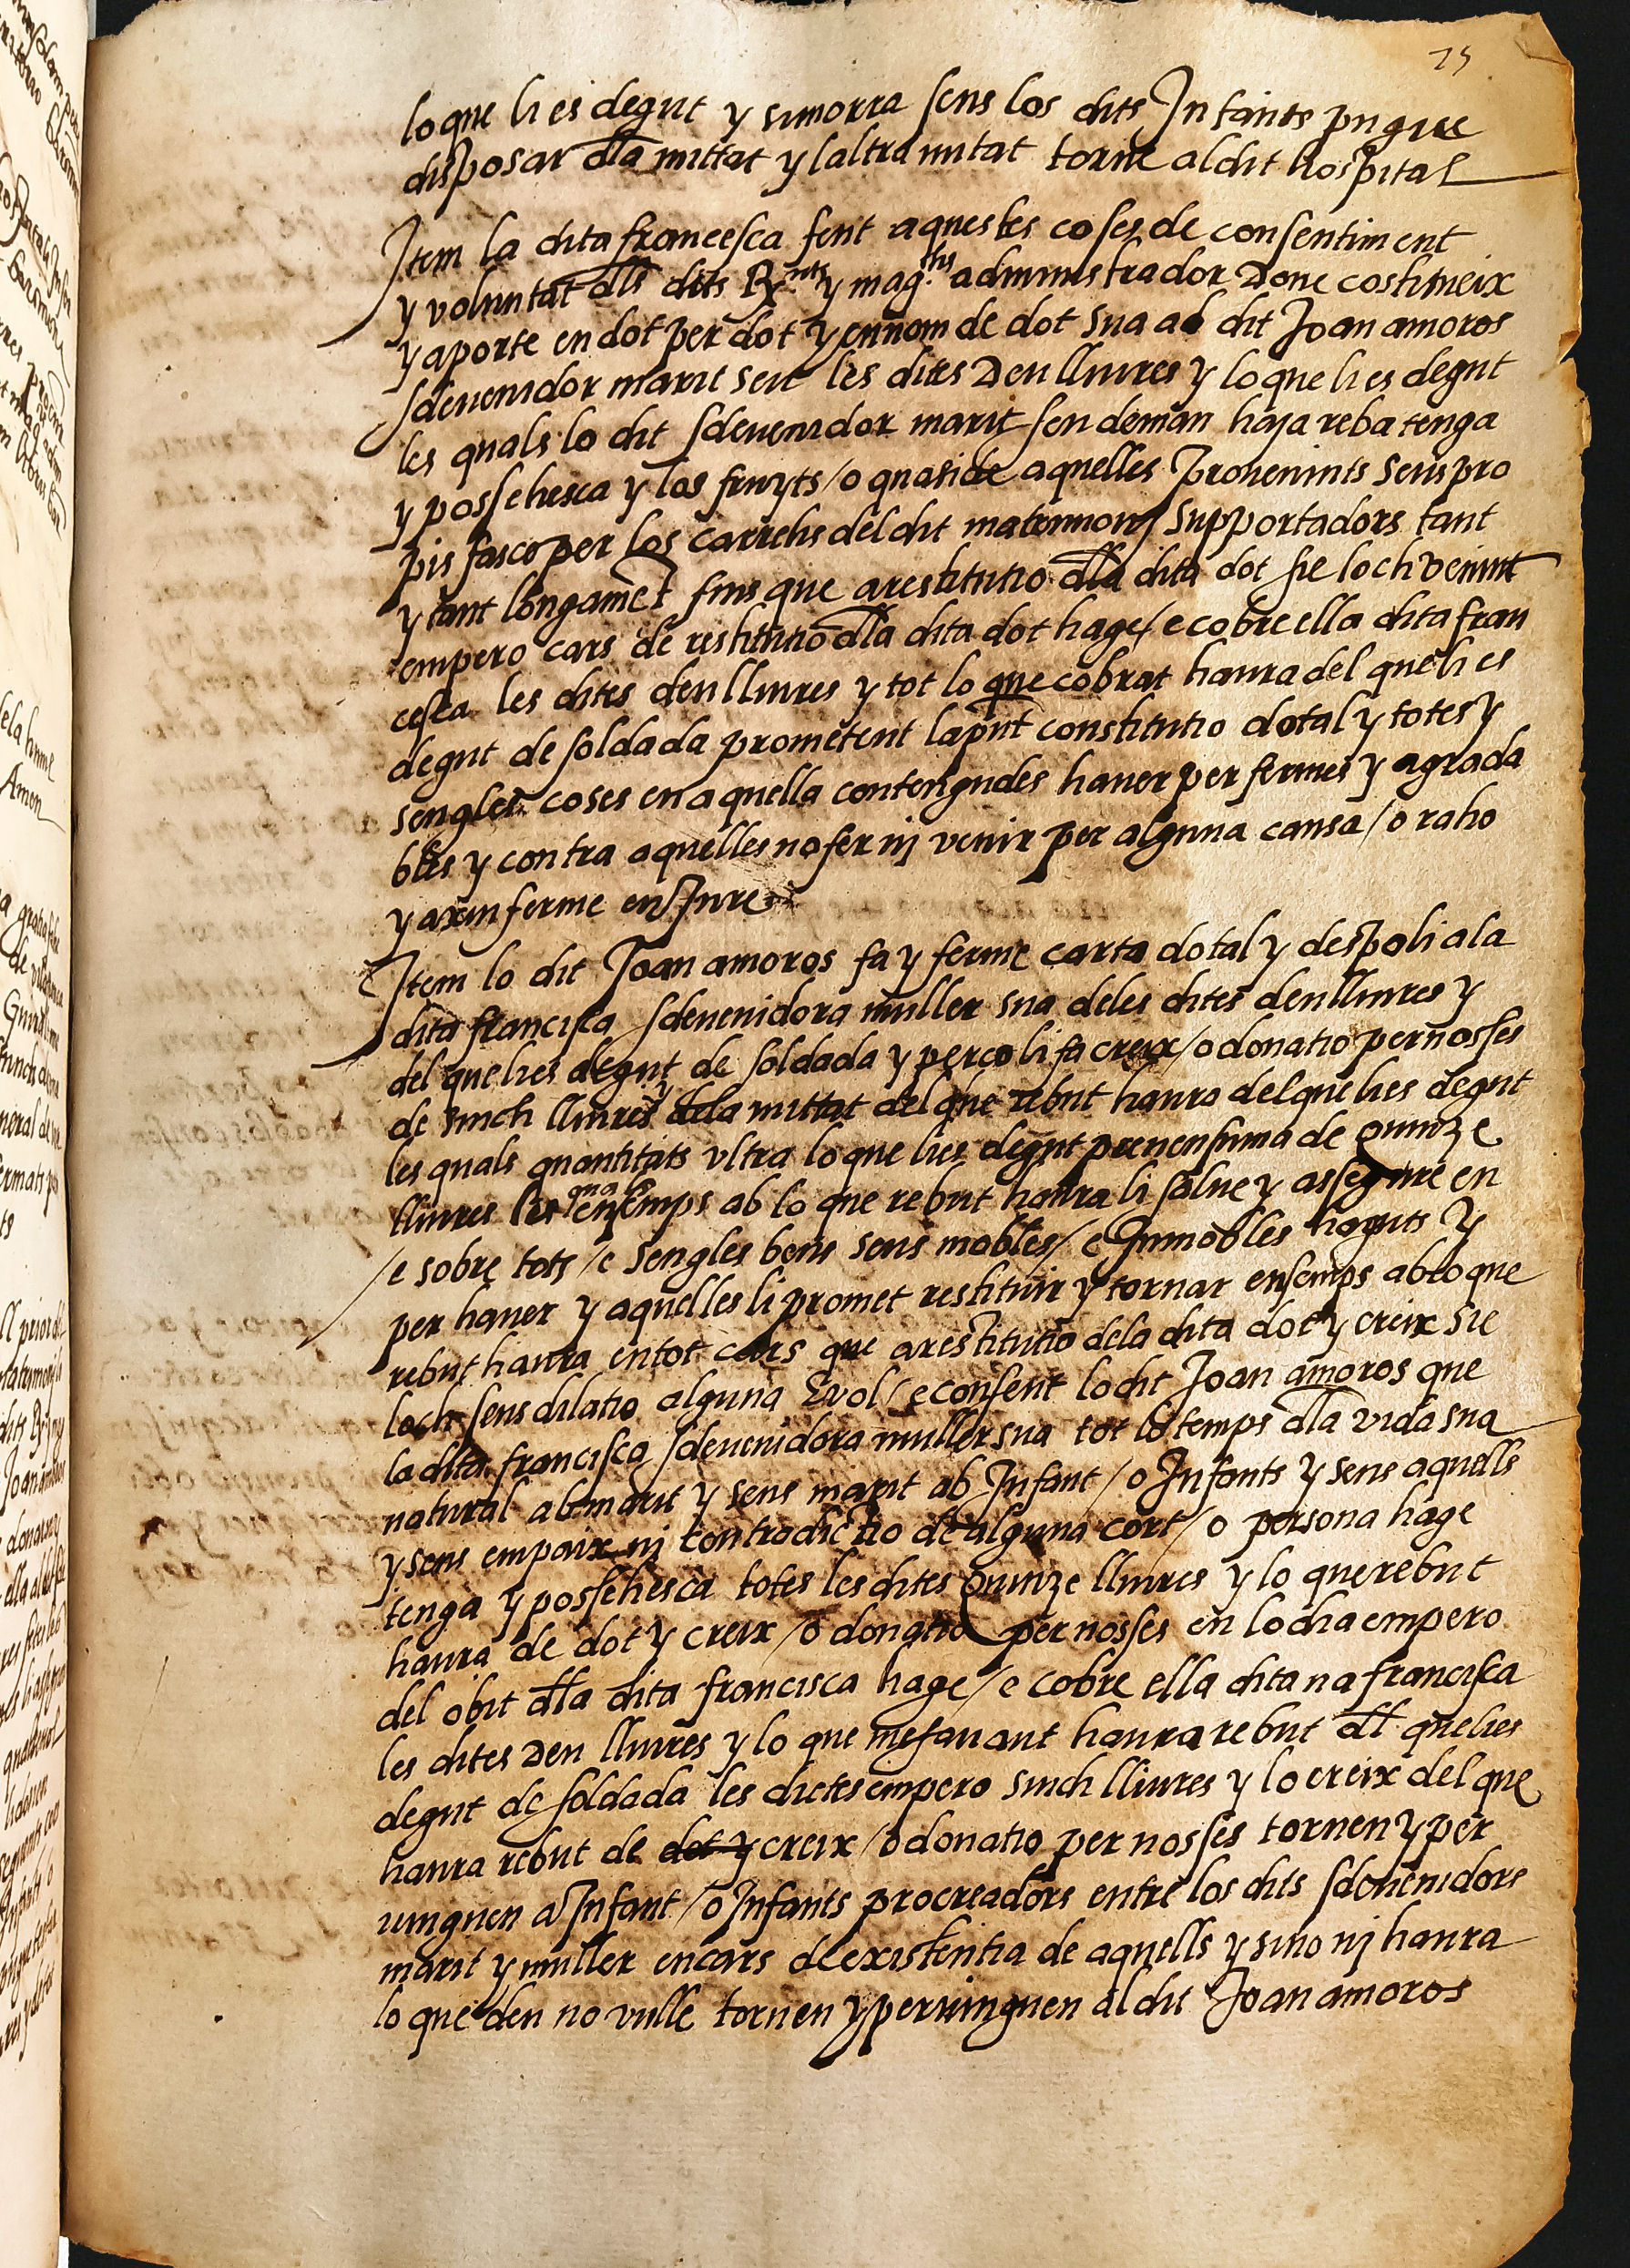 75
lo que li es degut y si morra sens los dits Infants pugue
disposar dla mittat y laltra mitat torne al dit hospital
Item la dita francesca fent aquestes coses de consentiment
y voluntat dls dits Rx.nts y mag.chs administrador Done costitueix
y aporte en dot per dot y en nom de dot sua al dit Joan amoros
sdevenidor marit seu les dites Deu lliures y lo que li es degut
les quals lo dit sdevenidor marit sen deman haja reba tenga
y possehesca y los fruyts / o quasi de aquelles provenints seus pro
pis fasco per los carrechs del dit matrimoni supportadors tant
y tant longamet fins que a restitutio dla dita dot sie loch venint
empero cars de restitutio dla dita dot hage / e cobre ella dita fran
cesca les dites deu lliures y tot lo que cobrat haura del que li es
degut de soldada prometent la pnt constitutio dotal y totes y
sengles coses en aquella contengudes haver per fermes y agrada
bles y contra aquelles no fer nj venir per alguna causa / o raho
y axi en ferme en Jure
Item lo dit Joan amoros fa y ferme carta dotal y despoli a la
dita francisca sdevenidora muller sua de les dites deu lliures y
del que li es degut de soldada y perço li fa creix / o donatio per nosses
de sinch lliures y dela mittat del que rebut haura del que li es degut
les quals quantitats ultra lo que li es degut prenen suma de quinze
lliures les quals ensemps ab lo que rebut haura li salve y assegure en
/ e sobre tots / e sengles bens seus mobles / e Inmobles haguts y
per haver y aquelles li promet restituir y tornar ensemps ab lo que
rebut haura en tot cars que a restitutio de la dita dot y creix sie
loch sens dilatio alguna E vol / e consent lo dit Joan amoros que
la dita francisca sdevenidora muller sua tot lo temps dla vida sua
natural ab marit y sens marit ab Infant / o Infants y sens aquells
y sens empaix nj contradictio de alguna cort / o persona hage
tenga y possehesca totes les dites quinze lliures y lo que rebut
haura de dot y creix / o donatio per nosses en lo dia empero
del obit dla dita francisca hage / e cobre ella dita na francisca
les dites Deu lliures y lo que mes avant haura rebut dl que li es
degut de soldada les dictes empero sinch lliures y lo creix del que
haura rebut de dot y creix / o donatio per nosses tornen y per
vinguen a Infant / o Infants procreadors entre los dits sdevenidors
marit y muller en cars de existentia de aquells y si no nj haura
lo que deu no vulle tornen y pervinguen al dit Joan amoros